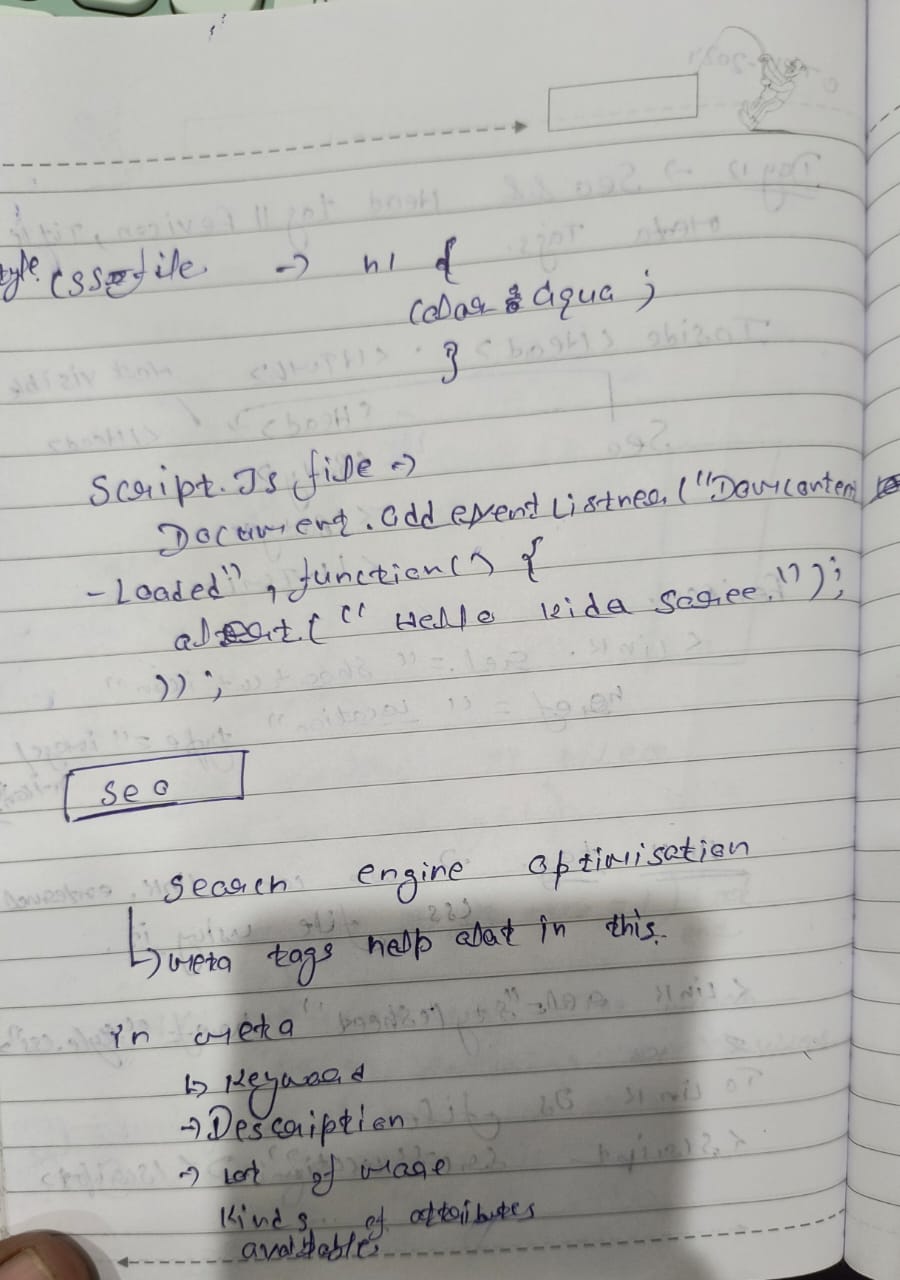 tyle. css file → h1 {
Color : aqua ;
}
Script. Js file →
Document . add event Listner ("Dom content
- Loaded" , function() {
alert ( " Hello kida Sagree. " ) ;
}) ;
Seo
Search engine optimisation
↳ meta tags help alot in this.
in meta
↳ Keyword
→ Description
→ Lot of more
Kinds of attributes
available.